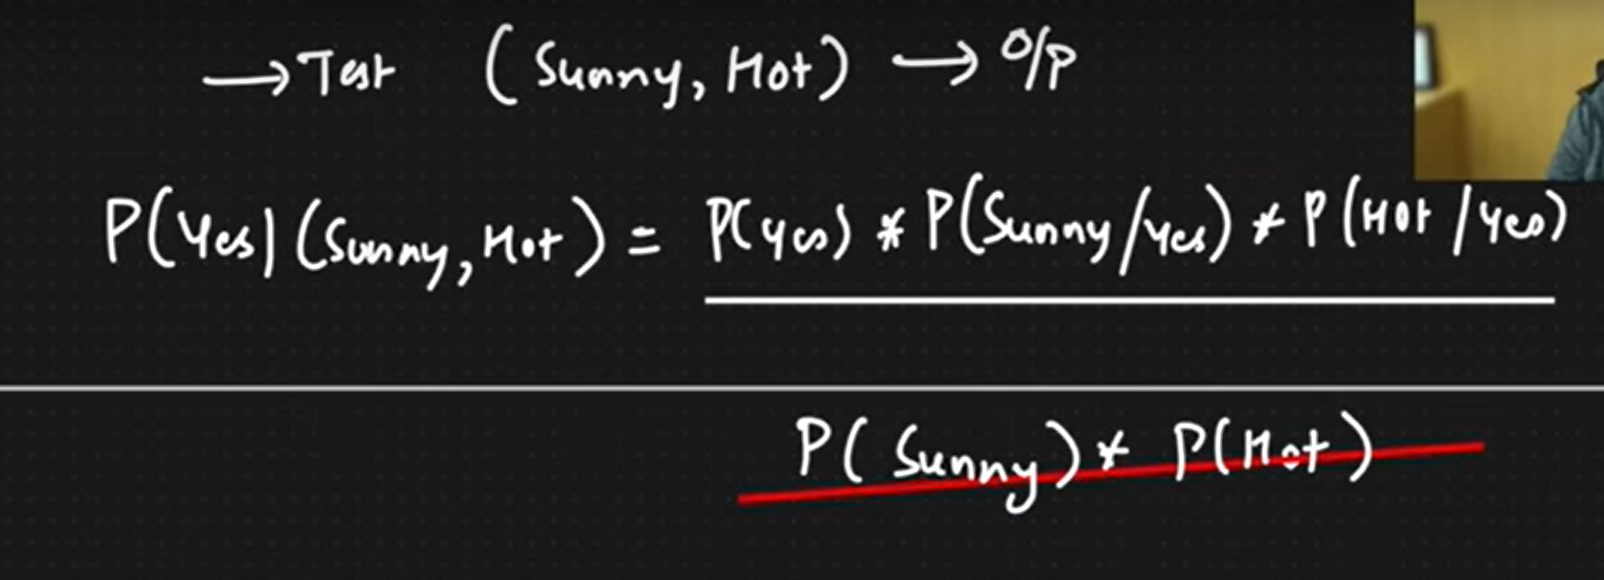 → Test (Sunny, Hot) → O/P
P(Yes|(Sunny, Hot) = P(Yes) * P(Sunny/Yes) * P(Hot/Yes)
P(Sunny) * P(Hot)